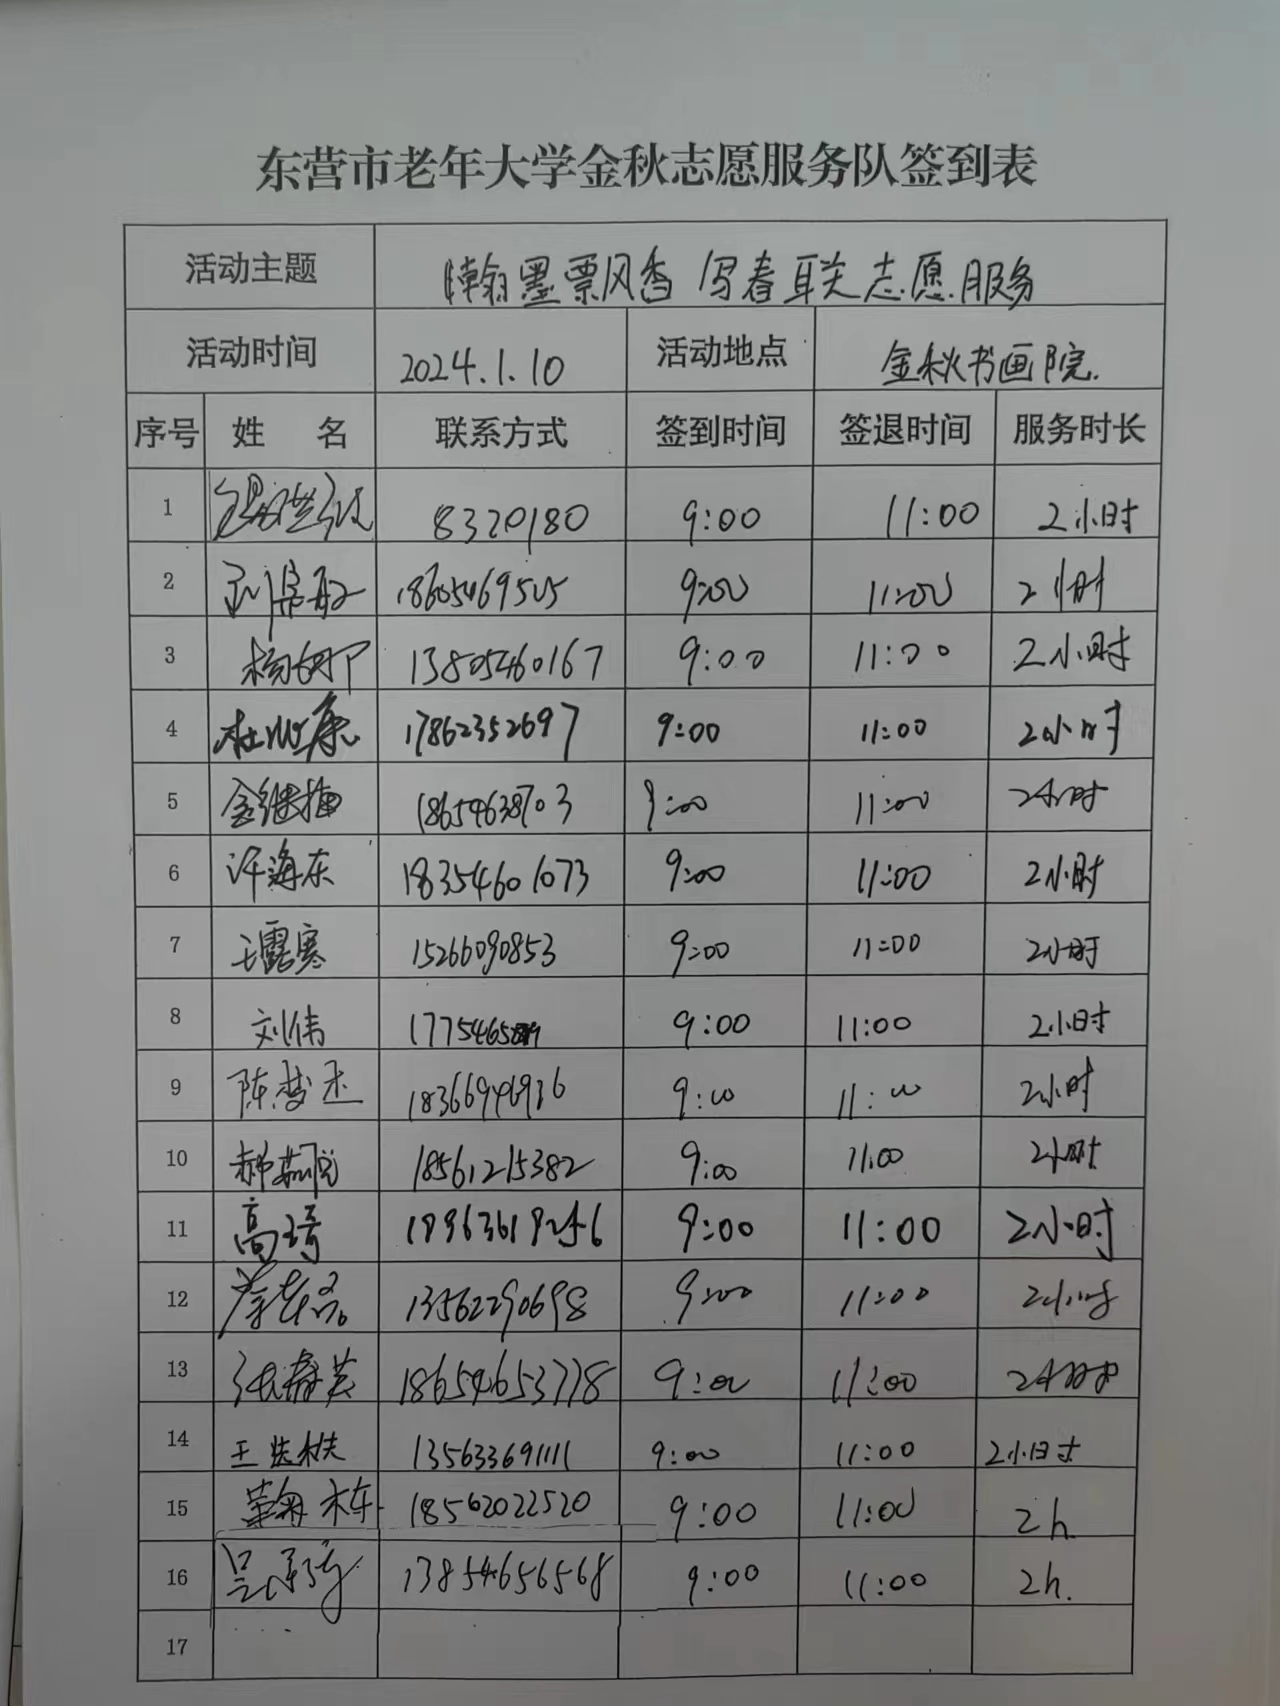 东营市老年大学金秋志愿服务队签到表
活动主题 翰墨票风香 写春联志愿服务
活动时间 2024.1.10 活动地点 金秋书画院.
序号 姓 名 联系方式 签到时间 签退时间 服务时长
1 8320180 9:00 11:00 2小时
2 18605469505 9:00 11:00 2小时
3 13805460167 9:00 11:00 2小时
4 17862352697 9:00 11:00 2小时
5 金继梅 18654638703 9:00 11:00 2小时
6 许海东 18354601073 9:00 11:00 2小时
7 王露寒 15266090853 9:00 11:00 2小时
8 刘伟 9:00 11:00 2小时
9 陈梦 18366946936 9:00 11:00 2小时
10 郝 18561215382 9:00 11:00 2小时
11 高琦 9:00 11:00 2小时
12 13562290698 9:00 11:00 2小时
13 张春英 18654653778 9:00 11:00 2小时
14 王 13563369111 9:00 11:00 2小时
15 18562022520 9:00 11:00 2h.
16 13854656568 9:00 11:00 2h.
17